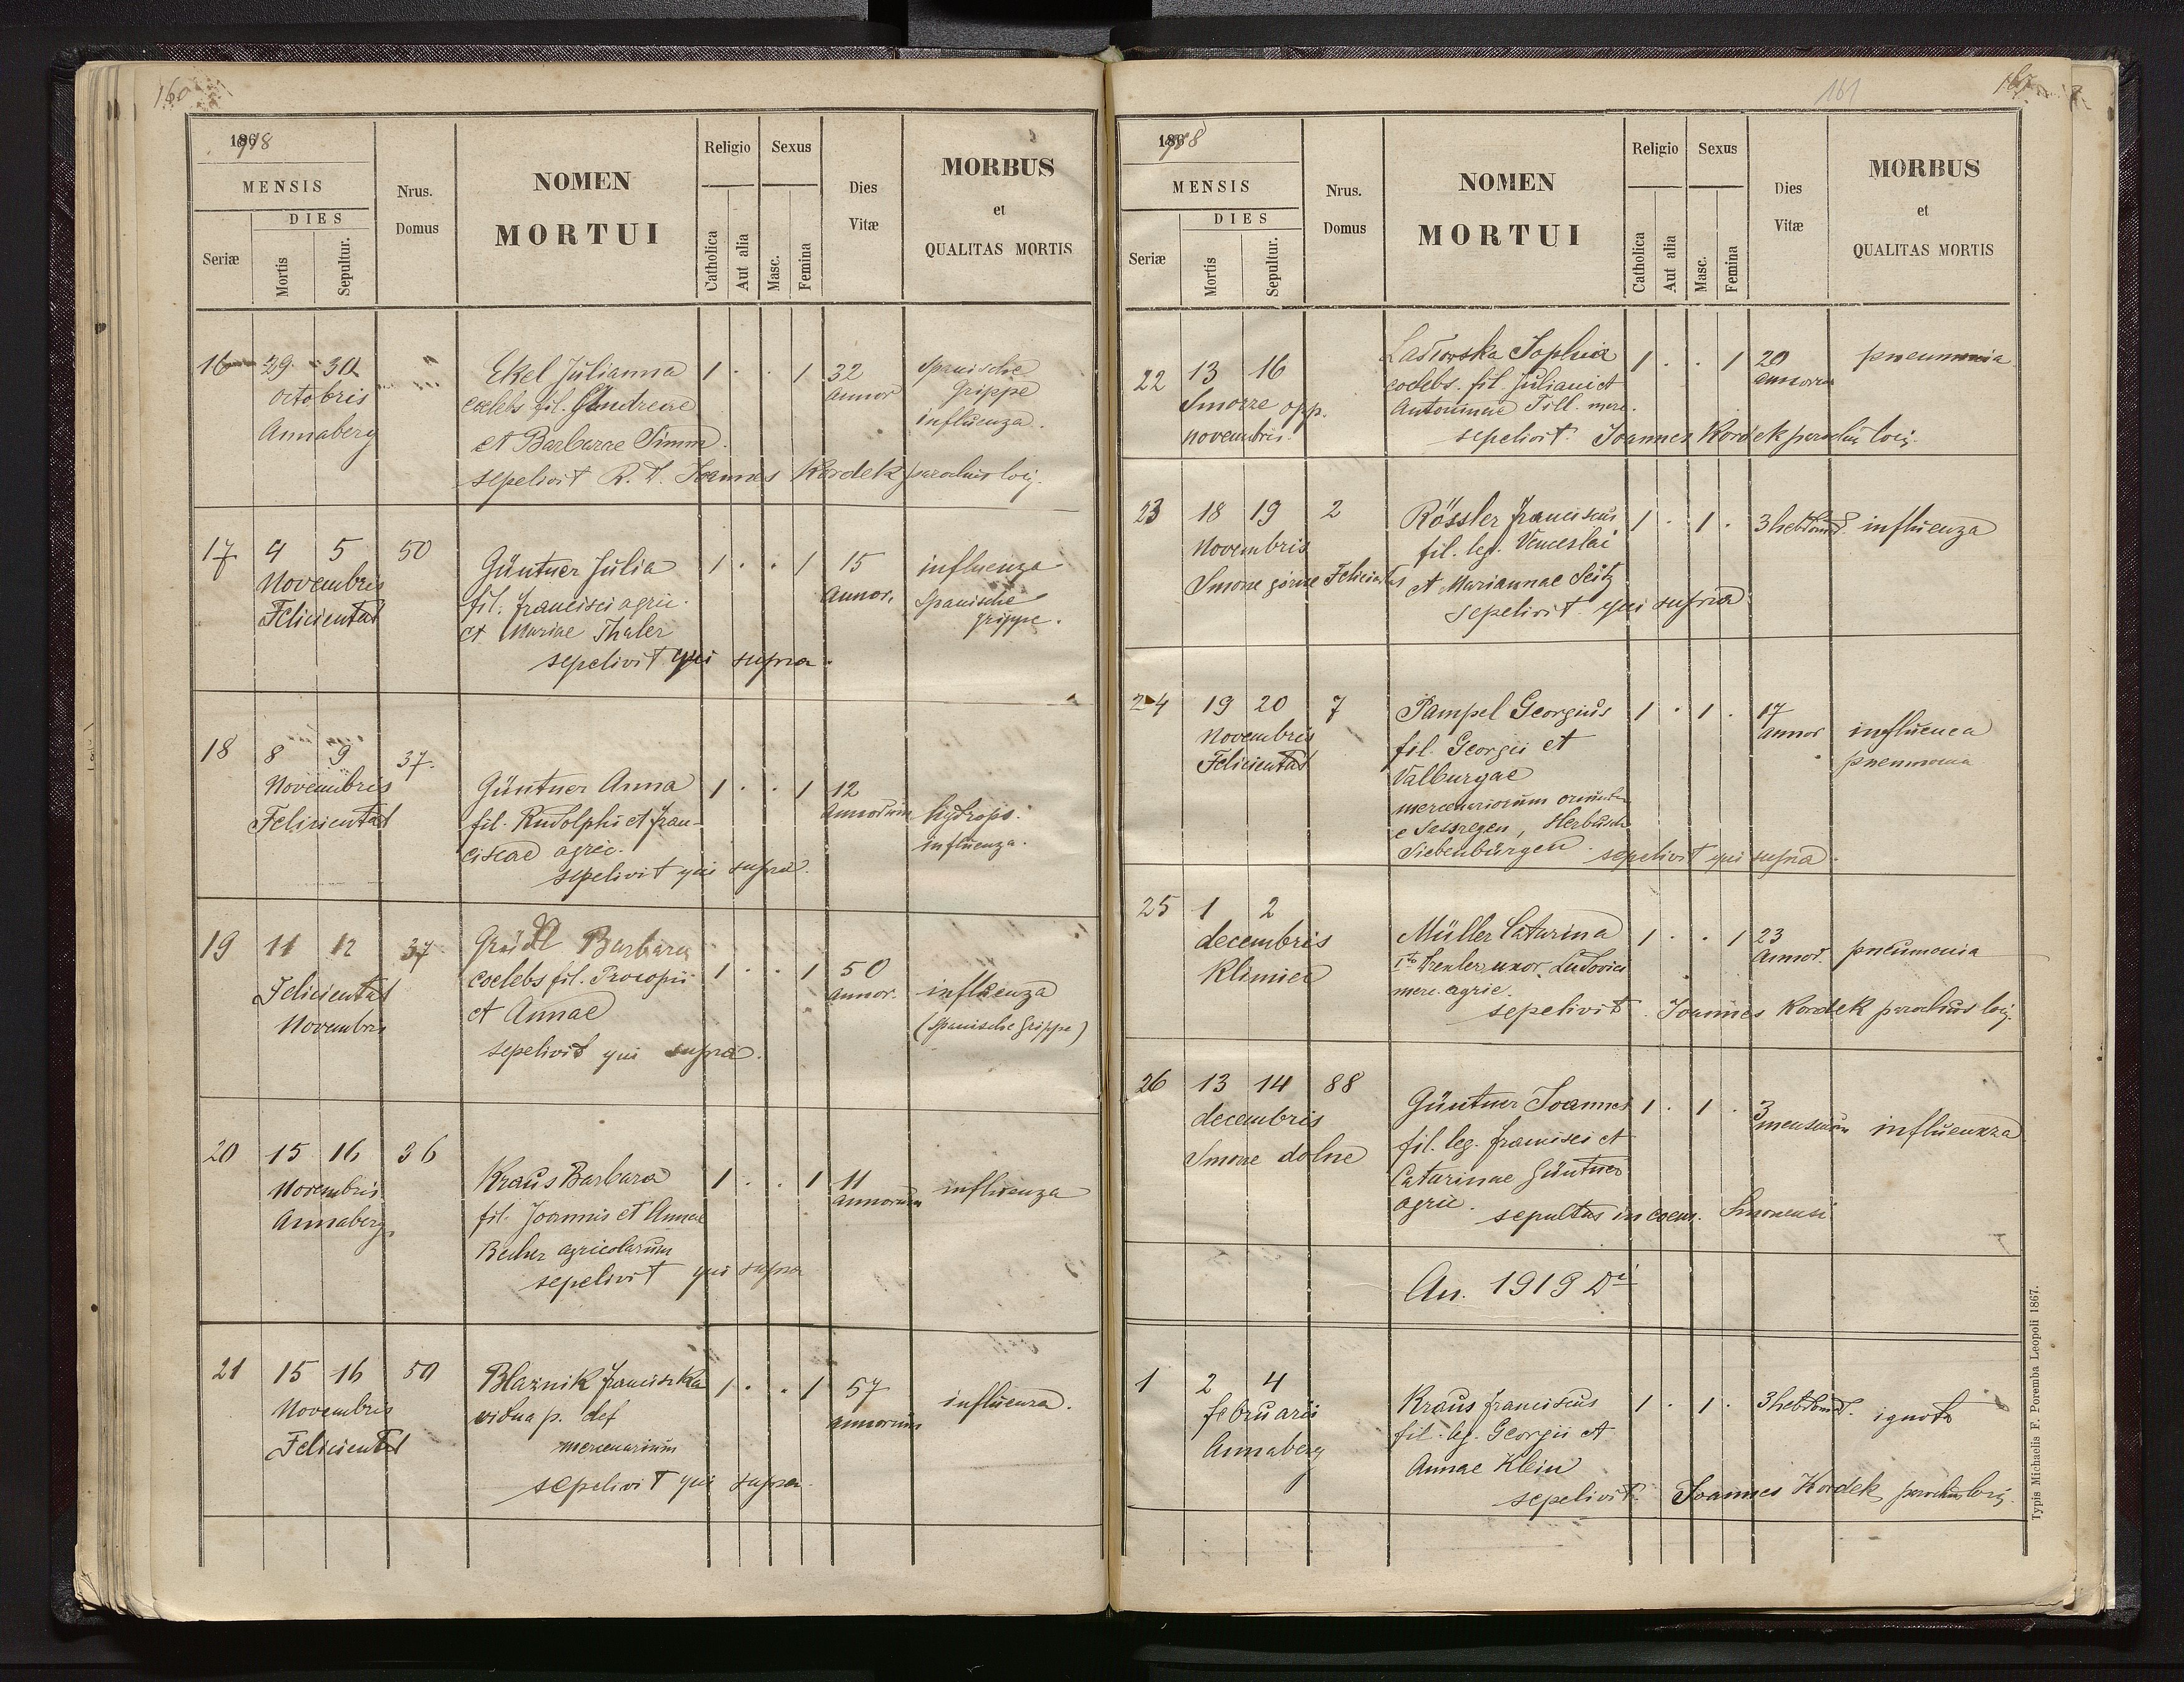 160
1918
MENSIS
DIES
Seriæ
Mortis
Sepultur.
Nrus.
Domus
NOMEN
MORTUI
Religio
Catholica
Aut alia
Sexus
Masc.
Femina
Dies
Vitæ
MORBUS
et
QUALITAS MORTIS
16 29 30 Ekel Julianna 1 . . 1 32 Spanische
octobris coelebs fil. Andreae annor Grippe
Annaberg et Barbarae Simm influenza.
sepelivit R. D. Joannes Kordek parochus loci.
17 4 5 50 Güntner Julia 1 . . 1 15 influenza
Novembris fil. Francisci agric. annor. Spanische
Felicientat et Mariae Thaler grippe.
sepelivit qui supra.
18 8 9 37. Güntner Anna 1 . . 1 12
Novembris fil. Rudolphi et Fran- annorum hydrops.
Felicientat ciscae agric. influenza.
sepelivit qui supra.
19 11 12 37 Barbara
Felicientat coelebs fil. Procopii 1 . . 1 50 influenza
Novembris et Annae annor. (Spanische Grippe)
sepelivit qui supra.
20 15 16 36 Kraus Barbara 1 . . 1 11 influenza
Novembris fil. Joannis et Annae annorum
Annaberg Becher agricolarum
sepelivit qui supra
21 15 16 50 Blaznik Franciszka 1 . . 1 57 influenza.
Novembris vidua p. def annorum
Felicientat mercenarium
sepelivit qui supra.
161
1918
MENSIS
DIES
Seriæ
Mortis
Sepultur.
Nrus.
Domus
NOMEN
MORTUI
Religio
Catholica
Aut alia
Sexus
Masc.
Femina
Dies
Vitæ
MORBUS
et
QUALITAS MORTIS
22 13 16 Sophia 1 . . 1 20 pneumonia
Smorze opp. coelebs. fil. Juliani et annorum
novembris. Antoninae Till. merc.
sepelivit Joannes Kordek parochus loci.
23 18 19 2 Rössler Franciscus 1 . 1 . 3 hebdomd. influenza
Novembris fil. leg. Venceslai
Smorze górne Felicientas et Mariannae Seitz
sepelivit qui supra
24 19 20 7 Pampel Georgius 1 . 1 . 17 influenca
Novembris fil. Georgii et annor pneumonia
Felicientat Valburgae
mercenariorum
e Sassregen,
Siebenbürgen. sepelivit qui supra.
25 1 2 Müller Catarina 1 . . 1 23 pneumonia
decembris uxor Ludovici annor.
Klimiec merc. agric.
sepelivit Joannes Kordek parochus loci.
26 13 14 88 Güntner Joannes 1 . 1 . 3 influenza
decembris fil. leg. Francisci et mensium
Smorze dolne Catarinae Güntner
agric. sepultus in coem. Smorensi
An. 1919 Di
1 2 4 Kraus Franciscus 1 . 1 . 3 hebdomd. ignota
februarii fil. leg. Georgii et
Annaberg Annae Klein
sepelivit Joannes Kordek parochus loci.
Typis Michaelis F. Poremba Leopoli 1867.